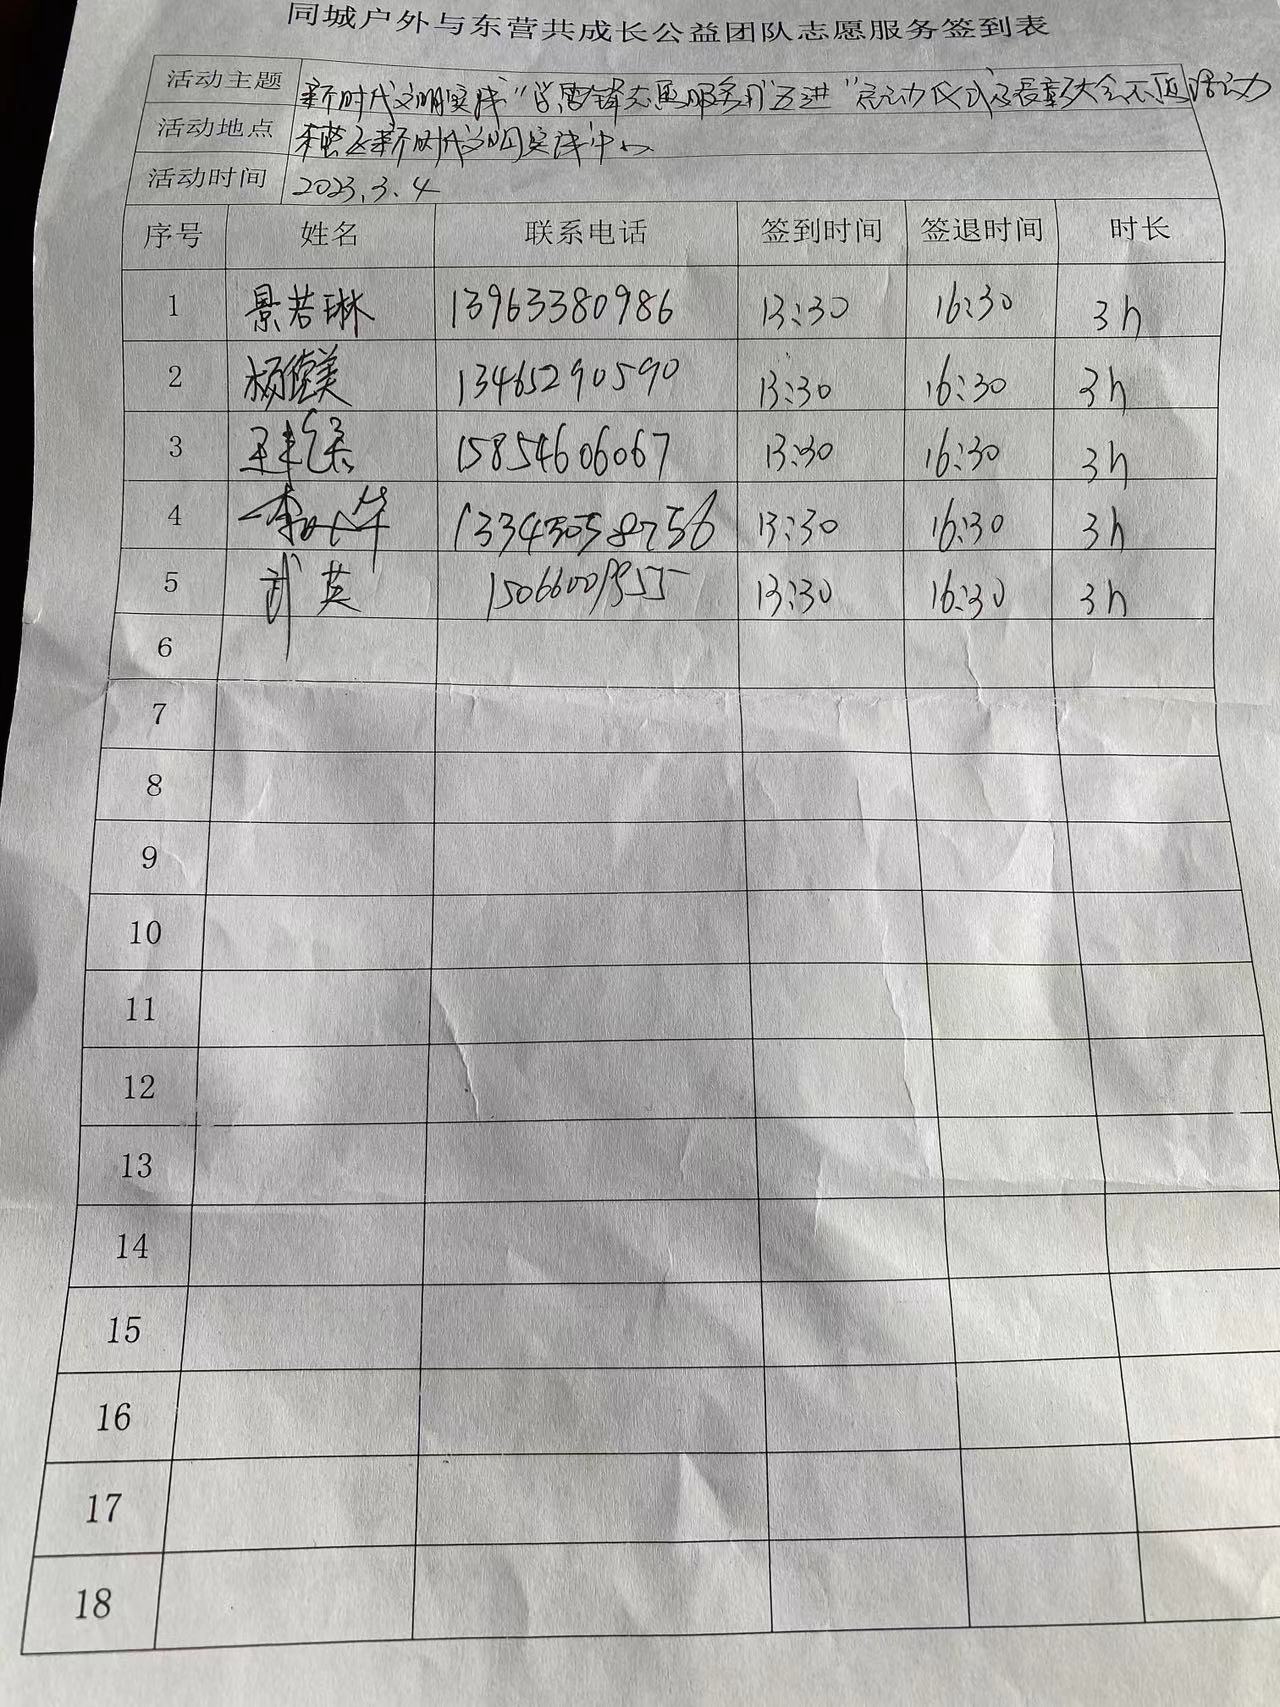 同城户外与东营共成长公益团队志愿服务签到表
活动主题 新时代文明实践“学雷锋志愿服务月五进”启动仪式及表彰大会 活动
活动地点 新时代文明实践中心
活动时间 2023.3.4
序号 姓名 联系电话 签到时间 签退时间 时长
1 景若琳 13963380986 13:30 16:30 3h
2 杨德美 13465290590 13:30 16:30 3h
3 15854606067 13:30 16:30 3h
4 13:30 16:30 3h
5 武英 13:30 16:30 3h
6
7
8
9
10
11
12
13
14
15
16
17
18